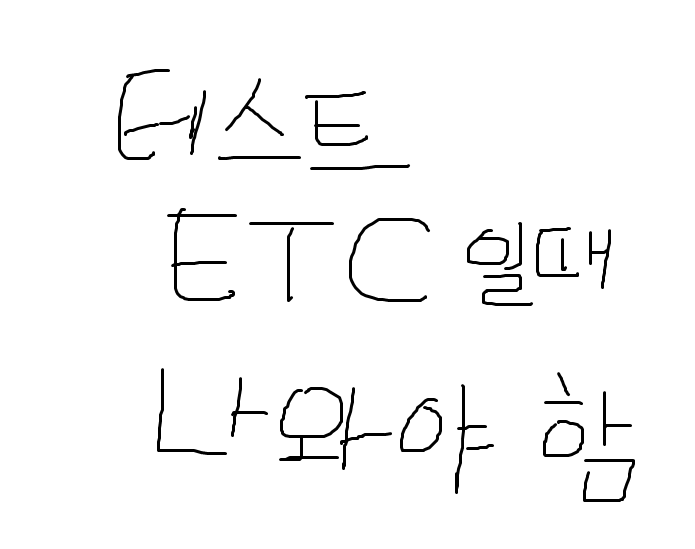 테스트
ETC 일때
나와야 함